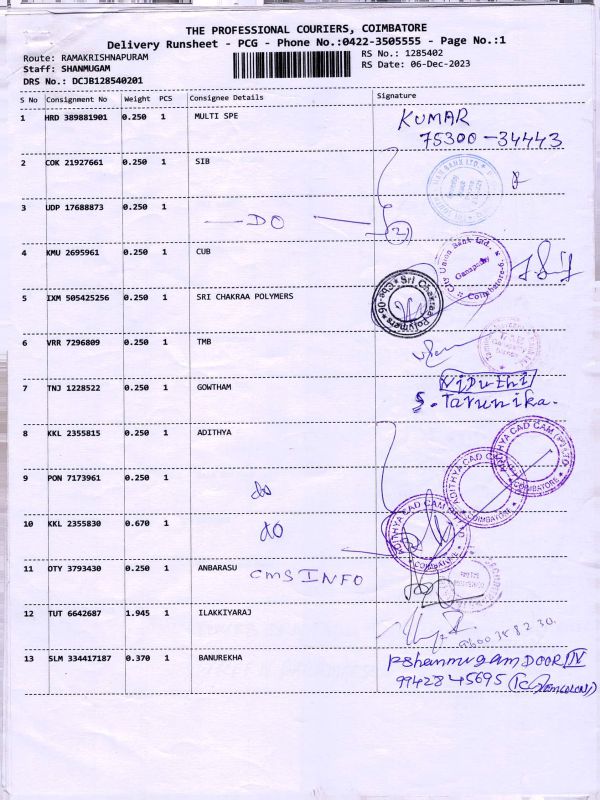 THE PROFESSIONAL COURIERS, COIMBATORE
Delivery Runsheet - PCG - Phone No.:0422-3505555 - Page No.:1
Route: RAMAKRISHNAPURAM
RS No.: 1285402
Staff: SHANMUGAM
RS Date: 06-Dec-2023
DRS No.: DCJB128540201
S No Consignment No Weight PCS Consignee Details Signature
1 HRD 389881901 0.250 1 MULTI SPE KUMAR
75300-34443
2 COK 21927661 0.250 1 SIB
3 UDP 17688873 0.250 1 DO (2)
4 KMU 2695961 0.250 1 CUB
City Union Bank Ltd. Ganapathy Coimbatore-6
5 IXM 505425256 0.250 1 SRI CHAKRAA POLYMERS
Sri Chakraa Polymers Cbe-06
6 VRR 7296809 0.250 1 TMB
7 TNJ 1228522 0.250 1 GOWTHAM
S. Tarunika.
8 KKL 2355815 0.250 1 ADITHYA
ADITHYA CAD CAM (P) LTD COIMBATORE
9 PON 7173961 0.250 1 do
ADITHYA CAD CAM COIMBATORE
10 KKL 2355830 0.670 1 do
ADITHYA CAD CAM (P) LTD COIMBATORE
11 OTY 3793430 0.250 1 ANBARASU
CMS INFO
12 TUT 6642687 1.945 1 ILAKKIYARAJ
13 SLM 334417187 0.370 1 BANUREKHA P.Shanmugam DOOR IV
99428 45695